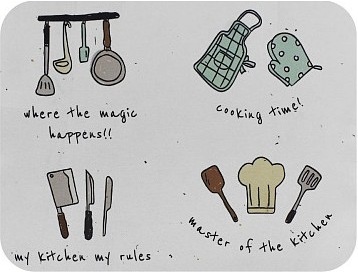 where the magic
happens!!
cooking time!
my kitchen my rules
master of the kitchen